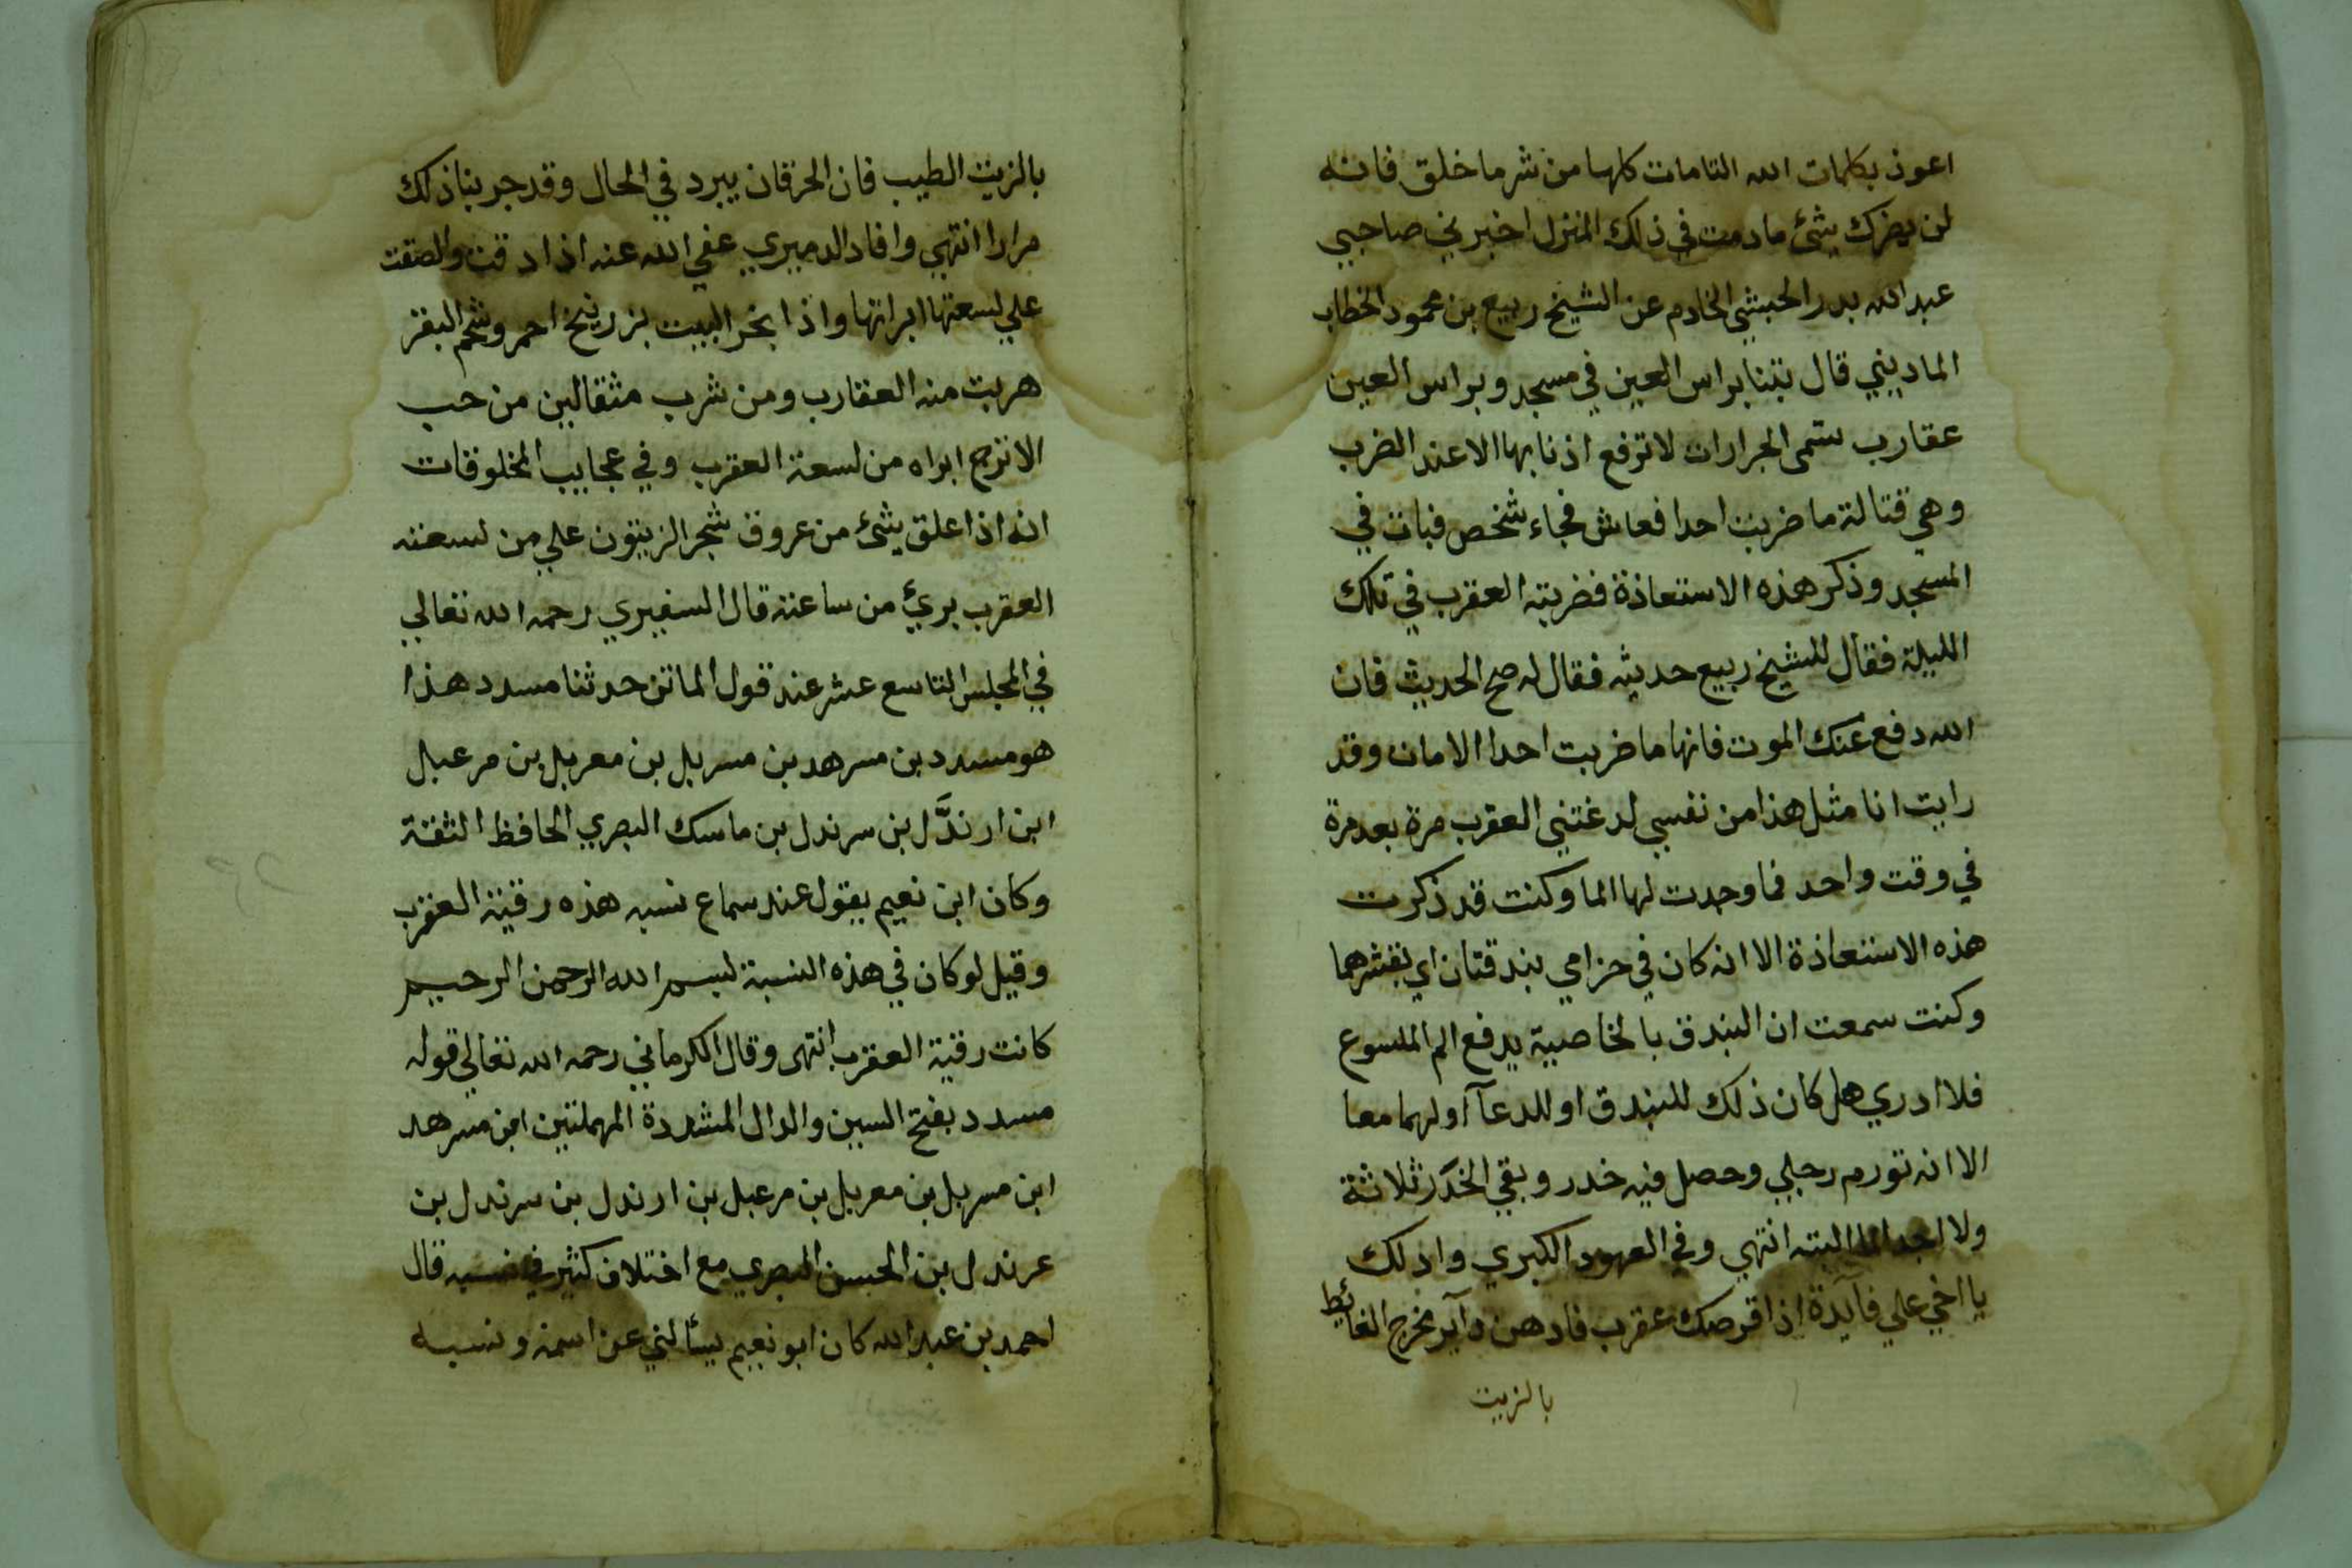 اعوذ بكلمات الله التامات كلها من شر ما خلق فانه
لن يضرك شئ مادمت في ذلك المنزل اخبرني صاحبي
عبدالله بدر الحبشي الخادم عن الشيخ ربيع بن محمود الخطاب
الماديني قال بتنا براس العين في مسجد وبراس العين
عقارب تسمى الجرارات لا ترفع اذنابها الا عند الضرب
وهي قتالة ما ضربت احدا فعاش فجاء شخص فبات في
المسجد وذكر هذه الاستعاذة فضربته العقرب في تلك
الليلة فقال للشيخ ربيع حديثه فقال له صح الحديث فان
الله دفع عنك الموت فانها ما ضربت احدا الا مات وقد
رايت انا مثل هذا من نفسي لدغتني العقرب مرة بعد مرة
في وقت واحد فما وجدت لها الما وكنت قد ذكرت
هذه الاستعاذة الا انه كان في حزامي بندقتان اي بقشرهما
وكنت سمعت ان البندق بالخاصية يدفع الم الملسوع
فلا ادري هل كان ذلك للبندق او للدعآ او لهما معا
الا انه تورم رجلي وحصل فيه خدر وبقي الخدر ثلاثة
ولا اجد الما البته انتهي وفي العهود الكبري وادلك
يا اخي علي فآيدة اذا قرصك عقرب فادهن دآير مخرج الغائط
بالزيت
بالزيت الطيب فان الحرقان يبرد في الحال وقد جربنا ذلك
مرارا انتهي وافاد الدميري عفي الله عنه اذا دقت والصقت
علي لسعتها ابراتها واذا بخر البيت بزرنيخ احمر وشحم البقر
هربت منه العقارب ومن شرب مثقالين من حب
الاترج ابراه من لسعة العقرب وفي عجايب المخلوقات
انه اذا علق شئ من عروق شجر الزيتون علي من لسعته
العقرب برئ من ساعته قال السفيري رحمه الله تعالي
في المجلس التاسع عشر عند قول الماتن حدثنا مسدد هذا
هو مسدد بن مسرهد بن مسربل بن معربل بن مرعبل
ابن ارندَّل بن سرندل بن ماسك البصري الحافظ الثقة
وكان ابن نعيم يقول عند سماع نسبه هذه رقية العقرب
وقيل لو كان في هذه النسبة لبسم الله الرحمن الرحيم
كانت رقية العقرب انتهى وقال الكرماني رحمه الله تعالي قوله
مسدد بفتح السين والدال المشددة المهملتين ابن مسرهد
ابن مسربل بن معربل بن مرعبل بن ارندل بن سرندل بن
عرندل بن الحسن البصري مع اختلاف كثير في نسبه قال
احمد بن عبدالله كان ابو نعيم يسألني عن اسمه ونسبه